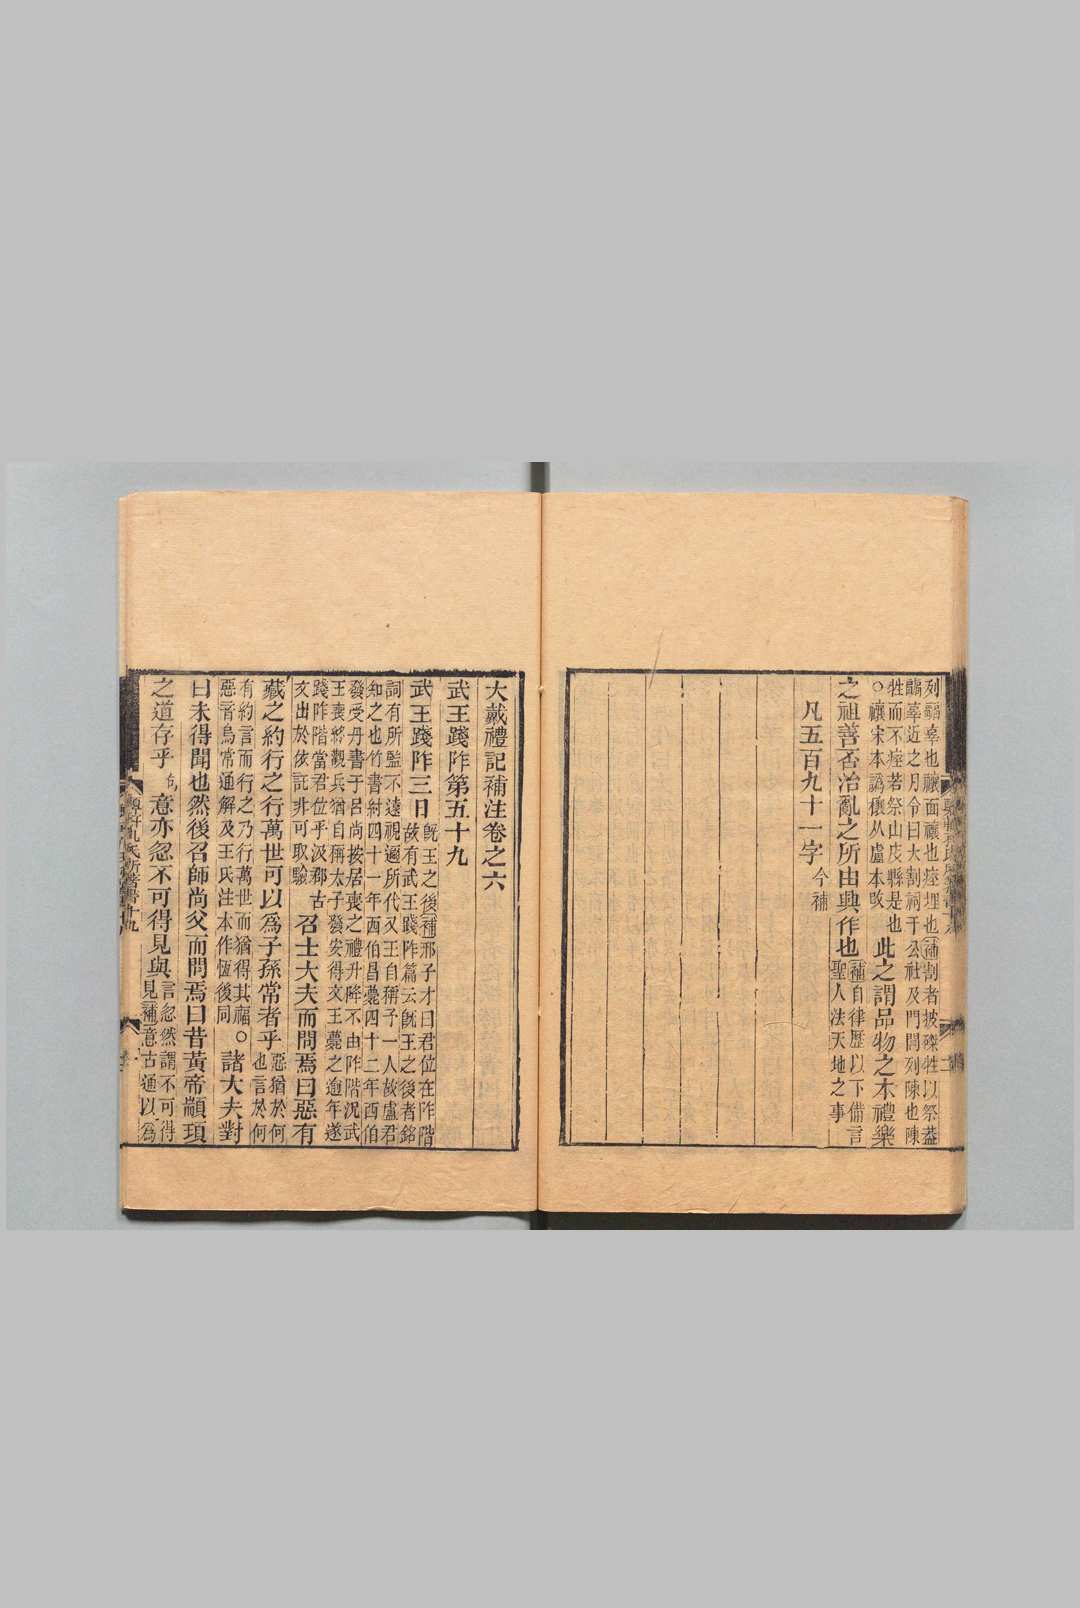 列疈辜也禳面禳也瘞埋也補割者披磔牲以祭葢
疈辜近之月令曰大割祠于公社及門閭列陳也陳
牲而不瘞若祭山庋縣是也
○禳宋本譌穰从盧本改
此之謂品物之本禮樂
之祖善否治亂之所由興作也補自律歷以下備言
聖人法天地之事
凡五百九十一字今補
大戴禮記補注卷之六
武王踐阼第五十九
武王踐阼三日旣王之後補邢子才曰君位在阼階
故有武王踐阼篇云旣王之後者銘
詞有所監不遠視邇所代又王自稱予一人故盧君
知之也竹書紂四十一年西伯昌薨四十二年西伯
發受丹書于呂尚按居喪之禮升降不由阼階況武
王喪將觀兵猶自稱太子發安得文王薨之逾年遂
踐阼階當君位乎汲郡古
文出於依託非可取驗
召士大夫而問焉曰惡有
藏之約行之行萬世可以爲子孫常者乎惡猶於何
也言於何
有約言而行之乃行萬世而猶得其福
惡音烏常通解及王氏注本作恆後同
○諸大夫對
曰未得聞也然後召師尚父而問焉曰昔黃帝顓頊
之道存乎
意亦忽不可得見與言忽然謂不可得
見補意古通以爲